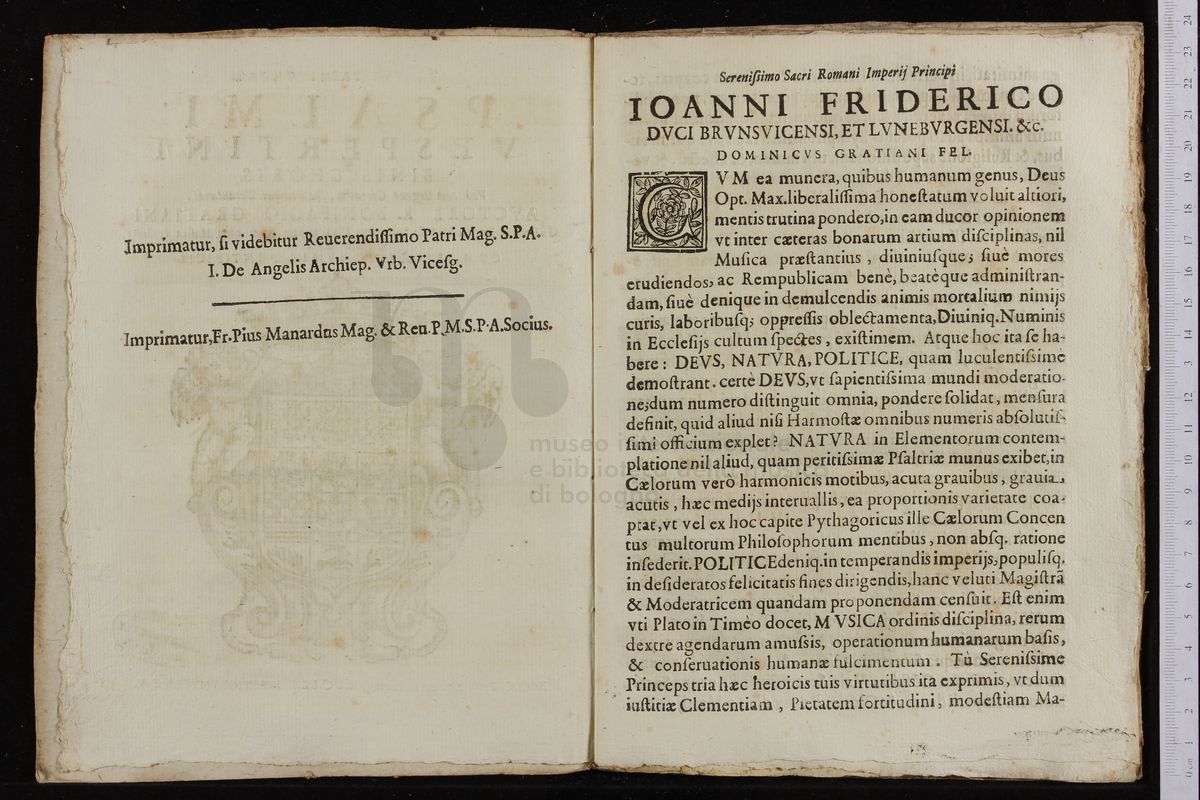 Imprimatur, ſi videbitur Reuerendiſſimo Patri Mag. S.P.A.
I. De Angelis Archiep. Vrb. Viceſg.
Imprimatur, Fr. Pius Manardus Mag. & Reu. P. M. S. P. A. Socius.
Sereniſsimo Sacri Romani Imperij Principi
IOANNI FRIDERICO
DVCI BRVNSVICENSI, ET LVNEBVRGENSI. &c.
DOMINICVS GRATIANI FEL.
CVM ea munera, quibus humanum genus, Deus
Opt. Max. liberaliſſima honeſtatum voluit altiori,
mentis trutina pondero, in eam ducor opinionem
vt inter cæteras bonarum artium diſciplinas, nil
Muſica præſtantius , diuiniuſque; ſiuè mores
erudiendos, ac Rempublicam benè, beatèque adminiſtran-
dam, ſiuè denique in demulcendis animis mortalium nimijs
curis, laboribuſq; oppreſſis oblectamenta, Diuiniq. Numinis
in Eccleſijs cultum ſpectes , exiſtimem. Atque hoc ita ſe ha-
bere : DEVS, NATVRA, POLITICE, quam luculentiſsimè
demoſtrant. certè DEVS, vt ſapientiſsima mundi moderatio-
ne; dum numero diſtinguit omnia, pondere ſolidat, menſura
definit, quid aliud niſi Harmoſtæ omnibus numeris abſolutiſ-
ſimi officium explet? NATVRA in Elementorum contem-
platione nil aliud, quam peritiſsimæ Pſaltriæ munus exibet, in
Cælorum verò harmonicis motibus, acuta grauibus , grauia
acutis , hæc medijs interuallis , ea proportionis varietate coa-
ptat, vt vel ex hoc capite Pythagoricus ille Cælorum Concen
tus multorum Philoſophorum mentibus , non abſq. ratione
inſederit. POLITICE deniq. in temperandis imperijs, populiſq.
in deſideratos felicitatis fines dirigendis, hanc veluti Magiſtrã
& Moderatricem quandam proponendam cenſuit. Eſt enim
vti Plato in Timèo docet, MVSICA ordinis diſciplina, rerum
dextre agendarum amuſsis, operationum humanarum baſis,
& conſeruationis humanæ fulcimentum . Tù Sereniſsime
Princeps tria hæc heroicis tuis virtutibus ita exprimis, vt dum
iuſtitiæ Clementiam , Pietatem fortitudini, modeſtiam Ma-